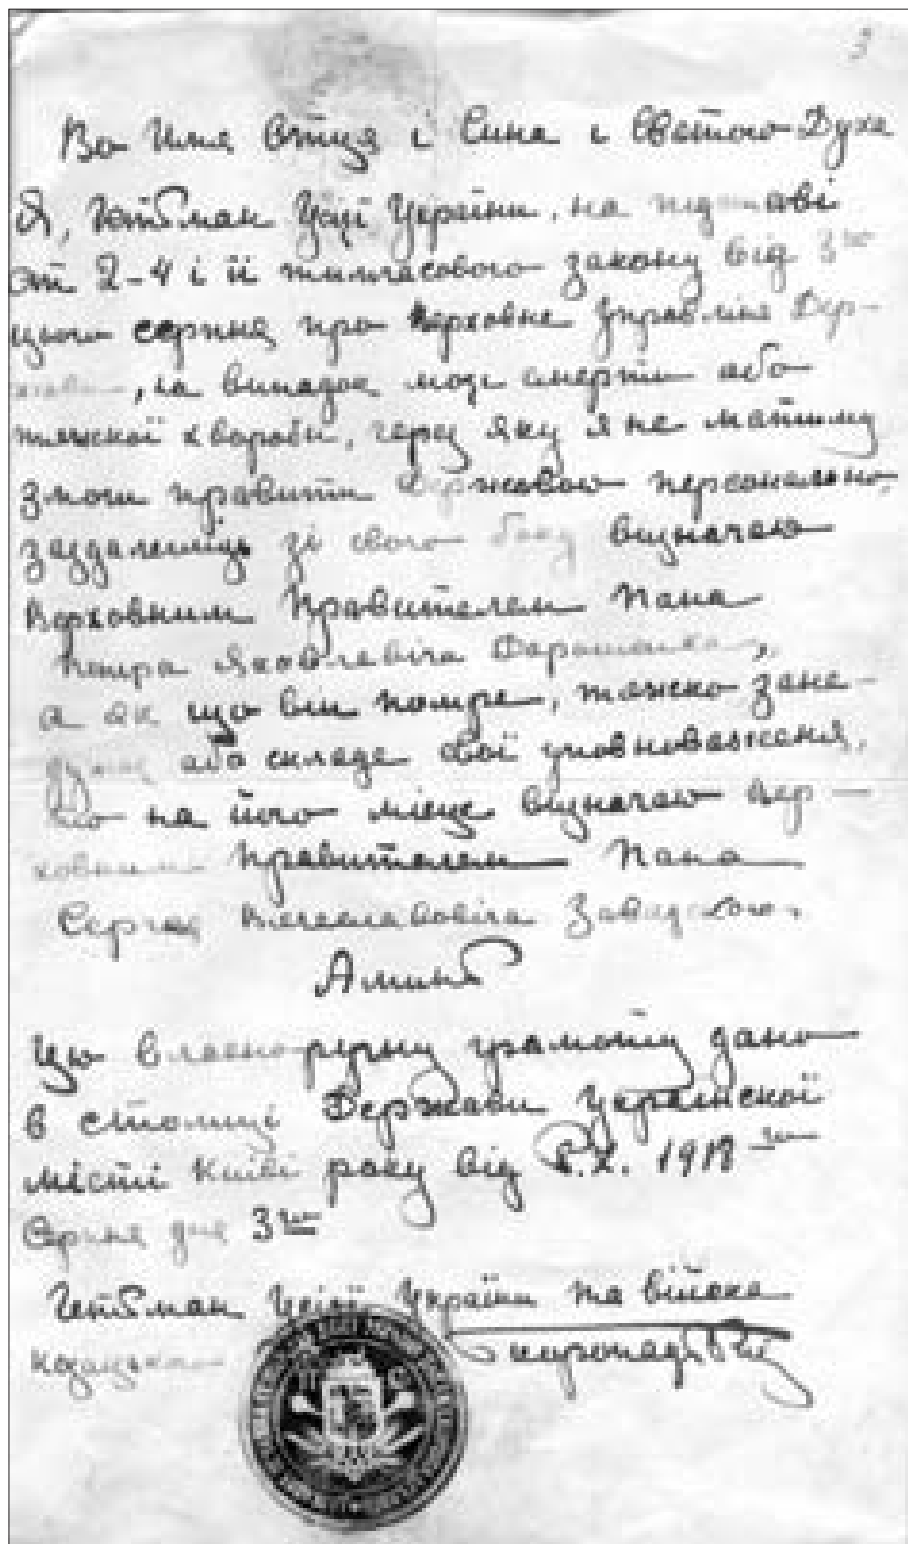 Во Имя Отця і Сина і Святого Духа
Я, Гетьман Усієї України, на підставі
ст 2-4 і її тимчасового закону від 3го
цього серпня про Верховне Управління Дер-
жавою, на випадок моєї смерти або
тяжкої хвороби, через яку я не матиму
змоги правити Державою персонально,
заздалегідь зі свого боку визначаю
Верховним Правителем Пана
Петра Яковлевіча Дорошенка,
а як що він помре, тяжко зане-
дужає або складе свої уповноваження,
то на його місце визначаю Вер-
ховним Правителем Пана
Сергія Вячеславовіча Завадского.
Аминь
Цю власноручну грамоту дано
в столиці Держави Української
місті Київі року від Р.Х. 1918го
Серпня дня 3го
Гетьман Усієї України та війска
козацького Скоропадський